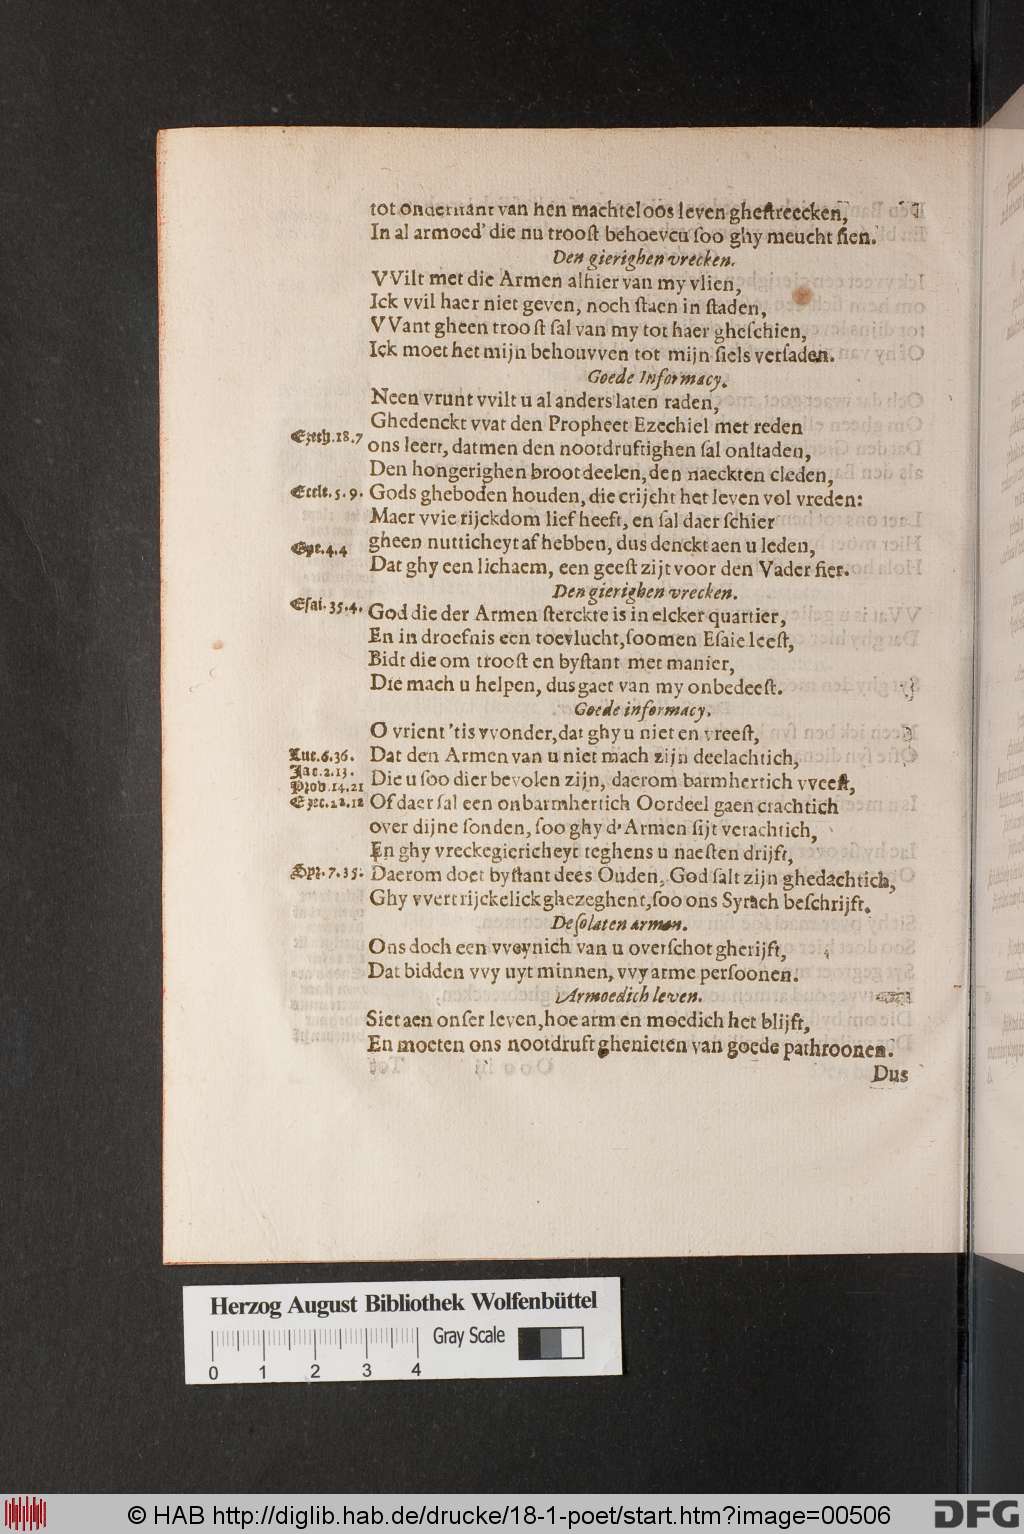 tot onderhant van hen machteloos leven gheſtreecken,
In al armoed' die nu trooſt behoeven ſoo ghy meucht ſien.
Den gierighen vrecken.
VVilt met die Armen alhier van my vlien,
Ick vvil haer niet geven, noch ſtaen in ſtaden,
VVant gheen trooſt ſal van my tot haer gheſchien,
Ick moet het mijn behouvven tot mijn ſiels verſaden.
Goede Informacy.
Neen vrunt vvilt u al anders laten raden,
Ghedenckt vvat den Propheet Ezechiel met reden
Ezech.18.7
ons leert, datmen den nootdruftighen ſal ontladen,
Den hongerighen broot deelen, den naeckten cleden,
Eccle.5.9. Gods gheboden houden, die crijcht het leven vol vreden:
Maer vvie rijckdom lief heeft, en ſal daer ſchier
Eph.4.4 gheen nutticheyt af hebben, dus denckt aen u leden,
Dat ghy een lichaem, een geeſt zijt voor den Vader fier.
Den gierighen vrecken.
Eſai.35.4. God die der Armen ſterckte is in elcker quartier,
En in droefnis een toevlucht, ſoomen Eſaie leeſt,
Bidt die om trooſt en byſtant met manier,
Die mach u helpen, dus gaet van my onbedeeſt.
Goede informacy.
O vrient 'tis vvonder, dat ghy u niet en vreeſt,
Luc.6.36. Dat den Armen van u niet mach zijn deelachtich,
Jac.2.13.
Prov.14.21 Die u ſoo dier bevolen zijn, daerom barmhertich vveeſt,
Ezec.18.12 Of daer ſal een onbarmhertich Oordeel gaen crachtich
over dijne ſonden, ſoo ghy d'Armen ſijt verachtich,
En ghy vreckegiericheyt teghens u naeſten drijft,
Syr.7.35. Daerom doet byſtant dees Ouden, God ſalt zijn ghedachtich,
Ghy vvert rijckelick ghezeghent, ſoo ons Syrach beſchrijft.
Deſolaten armen.
Ons doch een vveynich van u overſchot gherijft,
Dat bidden vvy uyt minnen, vvy arme perſoonen.
Armoedich leven.
Siet aen onſer leven, hoe arm en moedich het blijft,
En moeten ons nootdruft ghenieten van goede pathroonen.
Dus
Herzog August Bibliothek Wolfenbüttel
Gray Scale
0 1 2 3 4
© HAB http://diglib.hab.de/drucke/18-1-poet/start.htm?image=00506
DFG